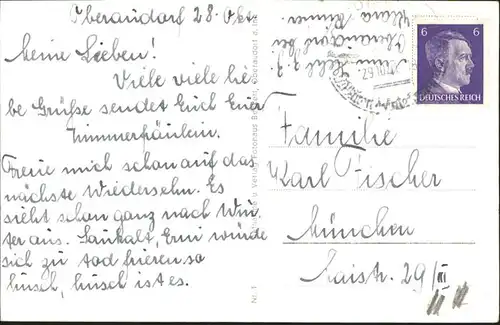 Oberaudorf 28. Okt.
Meine Lieben!
Viele viele lie-
be Grüße sendet Euch Euer
Zimmerfräulein.
Freue mich schon auf das
nächste Wiedersehn. Es
sieht schon ganz nach Win
ter aus. Saukalt, Erni würde
sich zu tod frieren so
husch, husch ist es.
Nr. 1
6 6
DEUTSCHES REICH
29.10.
Familie
Karl Fischer
München
Kaistr. 29/III